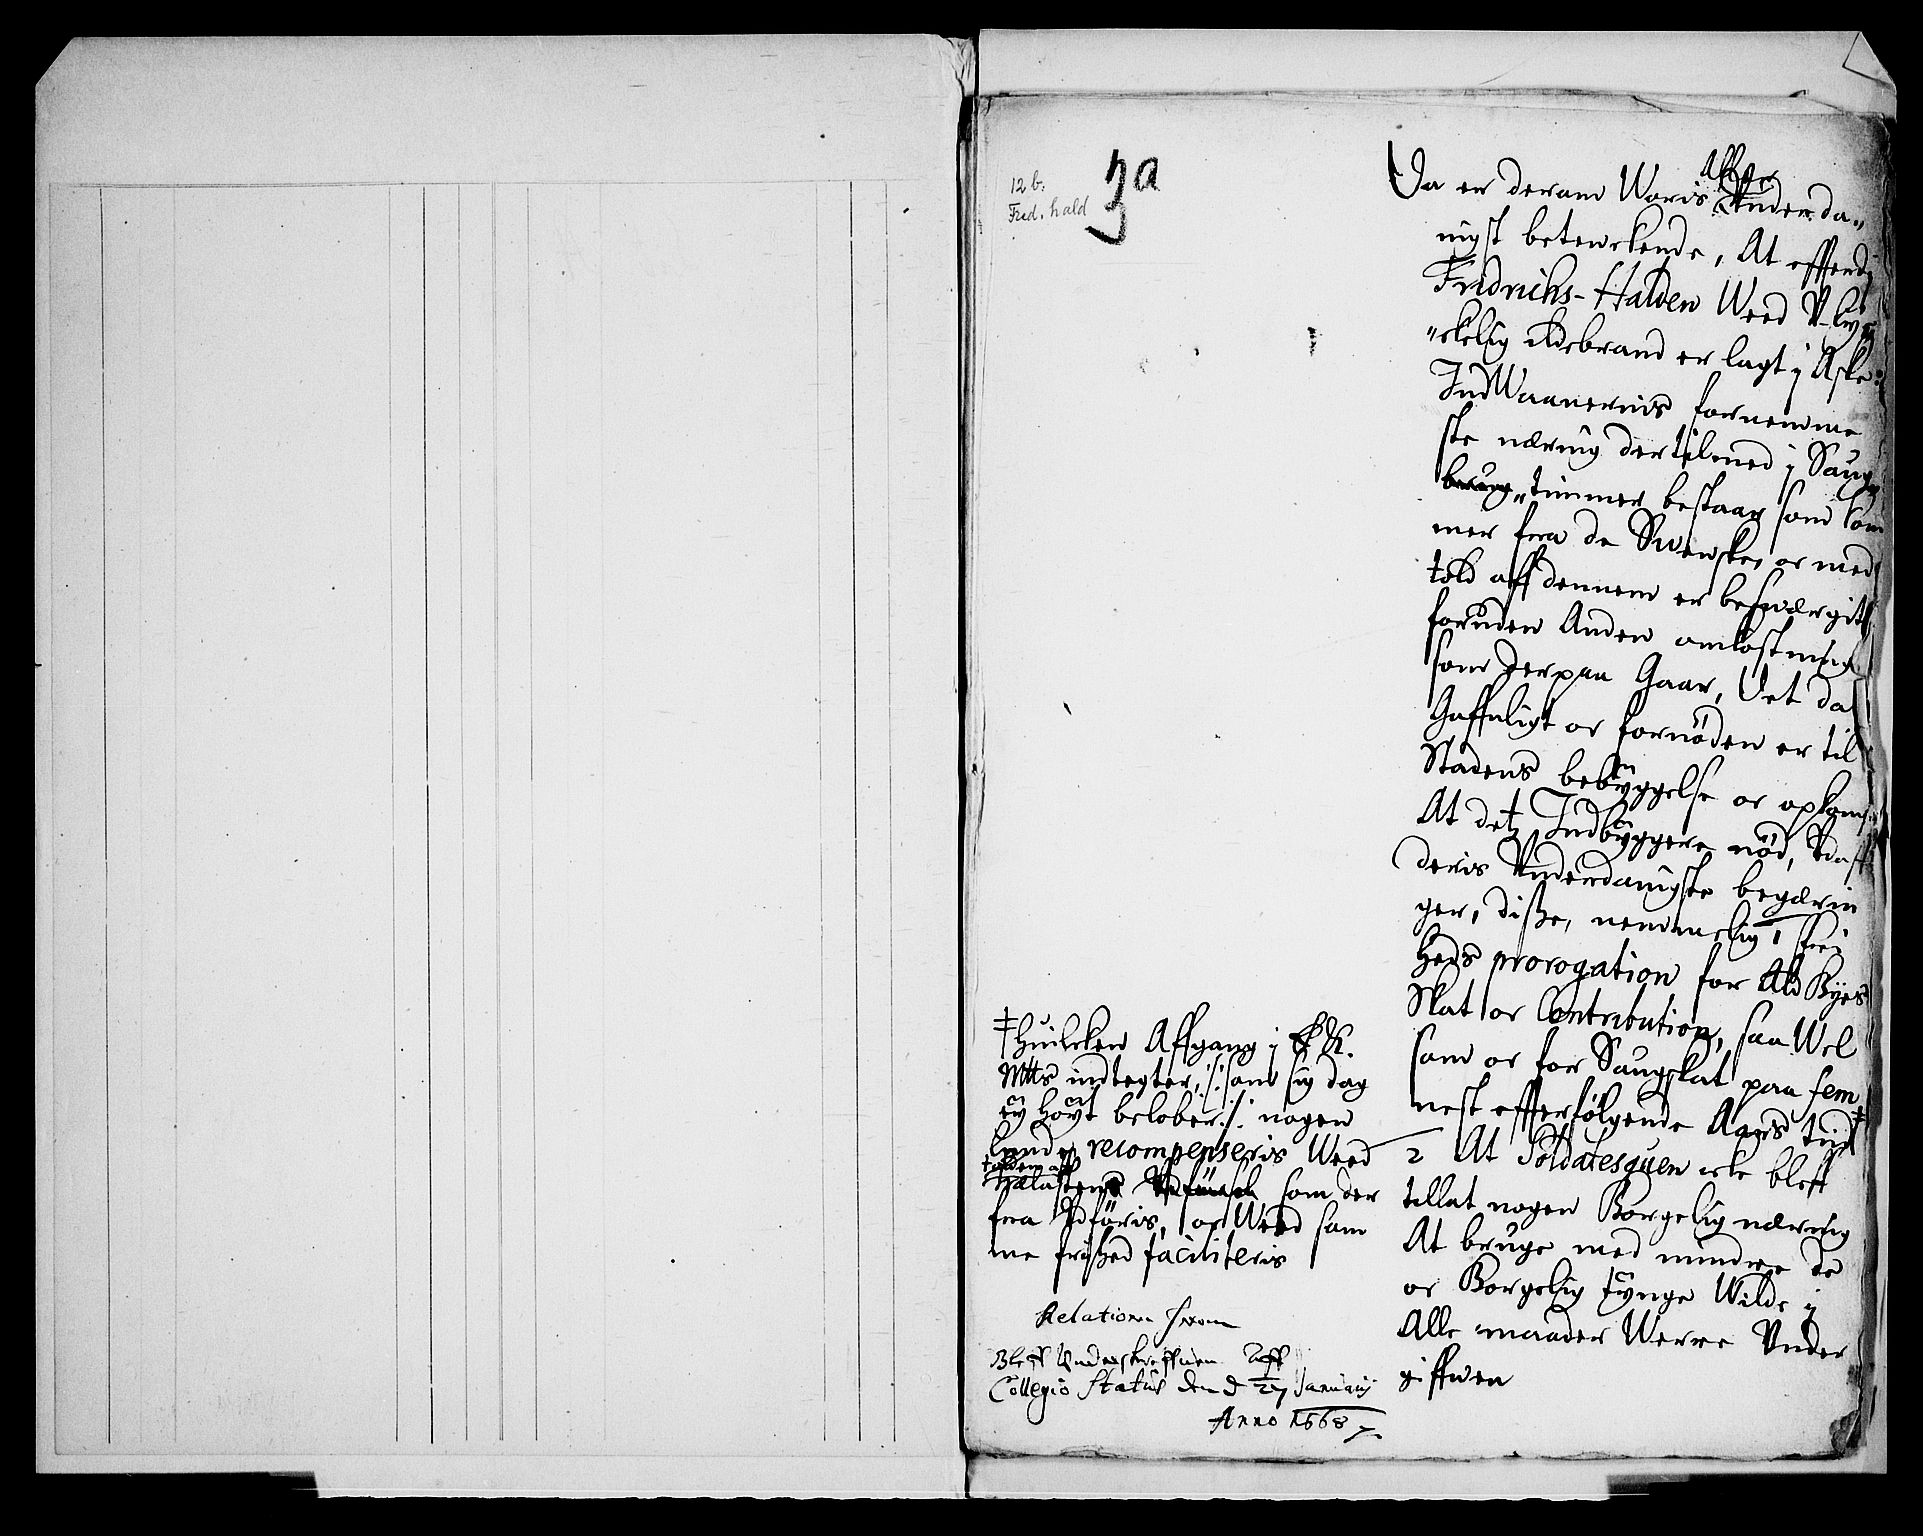 12 b.
Fred. hald
3a
Da er deram Woris Aller Underda„
nigst betenckende, At effterdj
Fridrichs-Halden Weed V-lyc
„ckelig Ildebrand er lagt j Aske:
IndWaanernis fornemme
ste næring dertilmed j Saug
brug„ timmer bestaar som kom
mer fra de Swenske, oc med
told aff dennem er besværgit
foruden Anden omkostning
som derpaa Gaar, Det da
Gaffnligt oc fornöden er til
Stadens bebyggelse oc opkomst
At detz Indbyggere nöd,
deris Underdanigste begærin
ger, disse, nemmelig 1 frj
heds prorogation for Ald Byes
Skat oc Contribution, saa Wel
som oc for Saugskat paa fem
nest effterfölgende Aars tiid ‡
2 At Soldatesquen icke bleff
tillat nogen Borgelig næring
At bruge med mindre de
oc Borgelig tynge Wilde j
Alle maader Werre Under
giffwen
‡ Huilcken Affgang j K.
Mtts indtegter, /: som sig dog
ey höyt belober :/ nogen
lunde recompenseris Weed
tolden aff
Hælasten som der
fra Udföris, oc Weed sam
me frihed faciliteris
Relation from
Bleff Underskreffwen Aff
Collegio Status den d 27 Januarij
Anno 1668